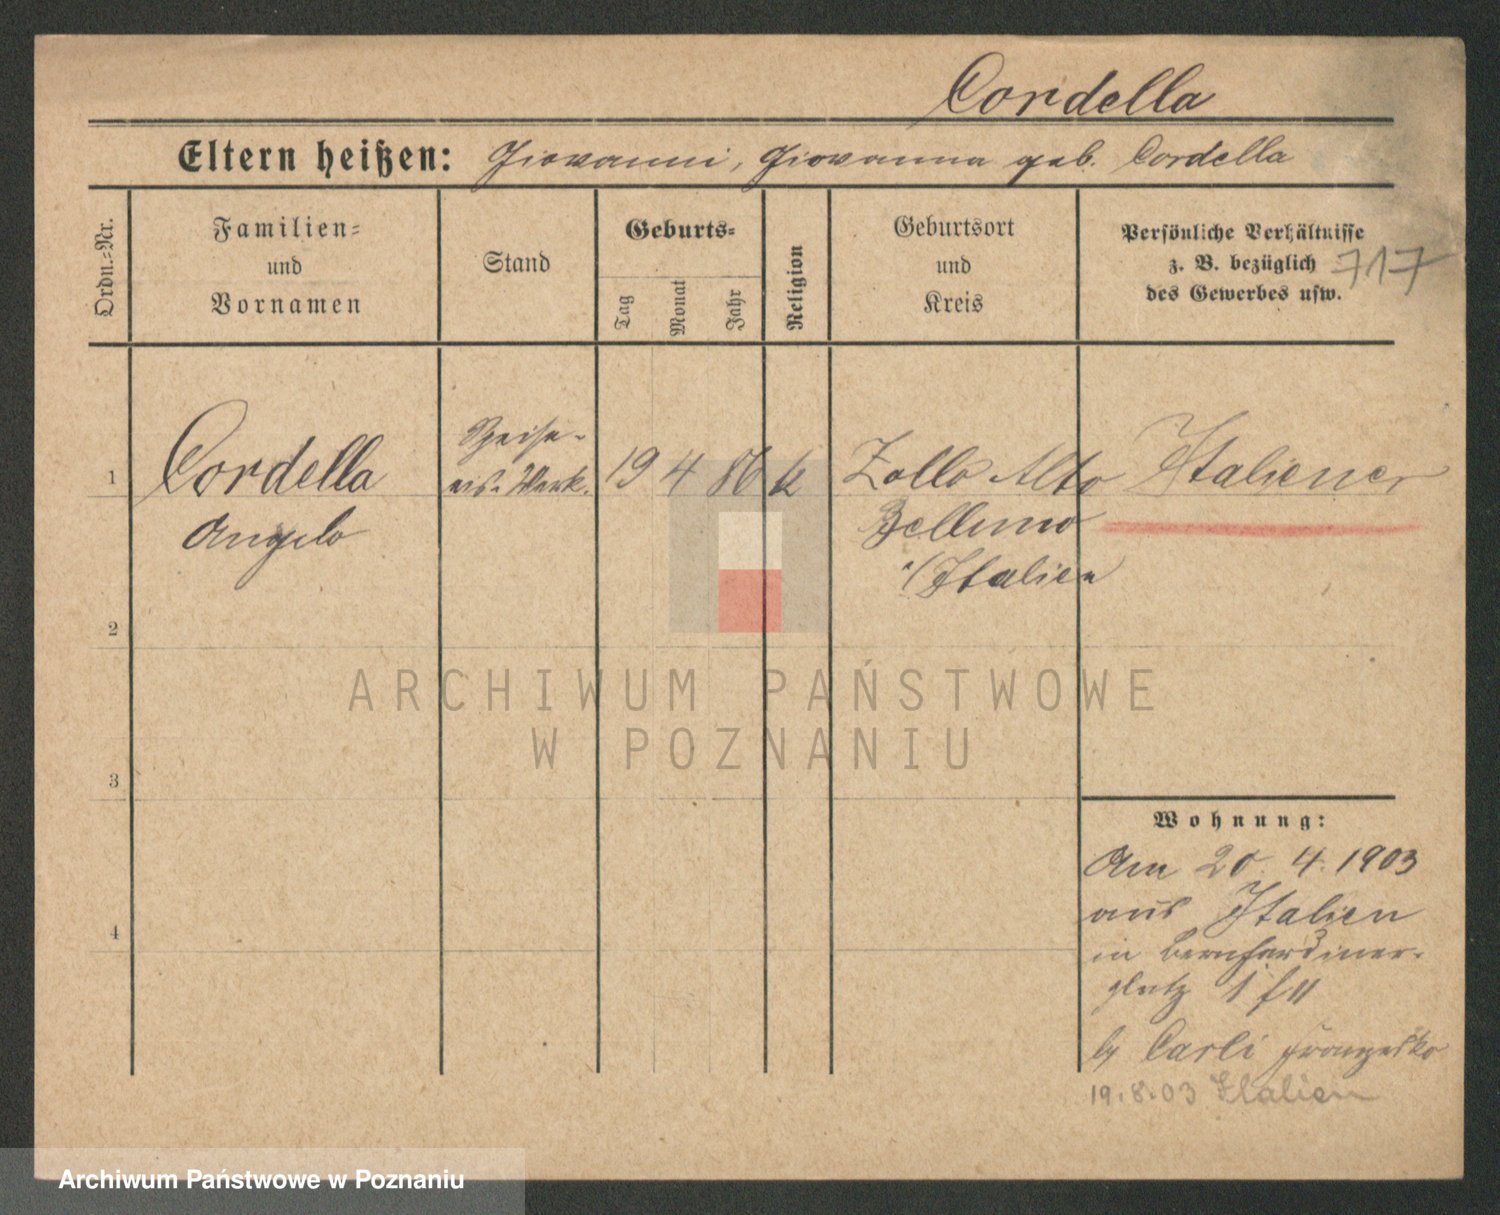 Cordella
Eltern heißen: Giovanni, Giovanna geb. Cordella
Ordn.=Nr.
Familien=
und
Vornamen
Stand
Geburts=
Tag
Monat
Jahr
Religion
Geburtsort
und
Kreis
Persönliche Verhältnisse
z. B. bezüglich
des Gewerbes usw.
717
1
Cordella
Angelo
Speise-
eis-Verk.
19 4 86 k
Zollo Alto
Belluno
i/Italien
Italiener
2
3
4
Wohnung:
Am 20. 4. 1903
aus Italien
in Bernhardiner-
platz 1
b/ Carli Franzesko
19.8.03 Italien
ARCHIWUM PAŃSTWOWE
W POZNANIU
Archiwum Państwowe w Poznaniu